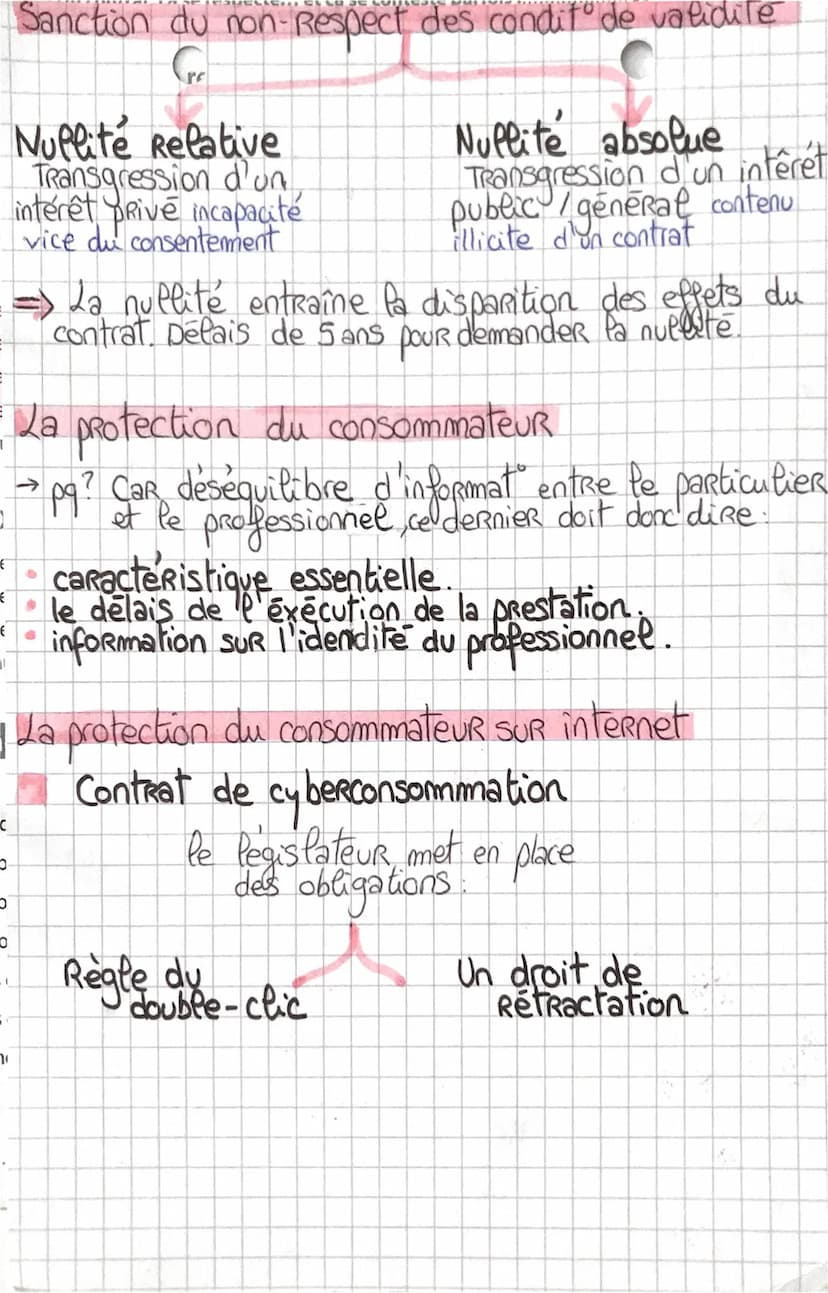 Sanction du non-Respect des condit° de validité
Nullité Relative
Transgression d'un
intérêt privé incapacité
vice du consentement
Nullité absolue
Transgression d'un intérêt
public / général contenu
illicite d'un contrat
⇒ La nullité entraîne la disparition des effets du
contrat. Délais de 5 ans pour demander la nullité.
La protection du consommateur
→ pq? Car déséquilibre d'informat° entre le particulier
et le professionnel, ce dernier doit donc dire :
• caractéristique essentielle.
• le délais de l'éxécution de la prestation.
• information sur l'idendité du professionnel.
La protection du consommateur sur internet
Contrat de cyberconsommation
le législateur met en place
des obligations :
Règle du
double-clic
Un droit de
Rétractation